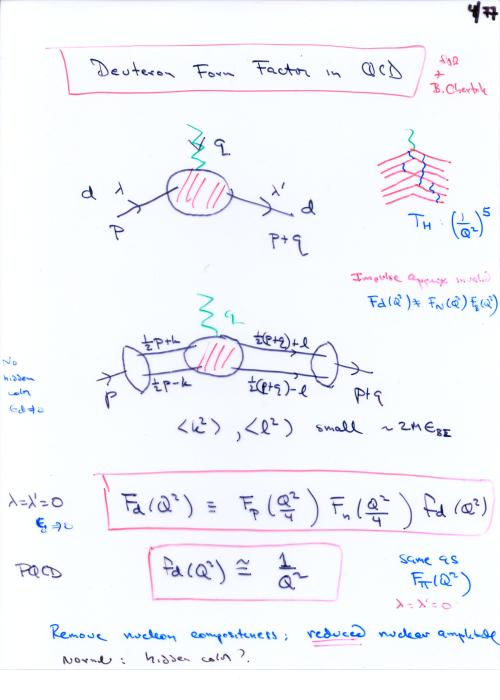 4/77
Deuteron Form Factor in QCD
SJB
+
B. Chertok
q
d λ λ' d
p p+q
T_H : (1/Q²)⁵
Impulse approx invalid
F_d(Q²) ≠ F_N(Q²) F_B(Q²)
q
½p+k ½(p+q)+l
½p-k ½(p+q)-l
p p+q
No
hidden
color
<k²>, <l²> small ~ 2Mε_BE
λ=λ'=0
F_d(Q²) ≡ F_p(Q²/4) F_n(Q²/4) f_d(Q²)
PQCD
f_d(Q²) ≅ 1/Q²
same as
F_π(Q²)
λ=λ'=0
Remove nucleon compositeness; reduced nuclear amplitude
Normal: hidden color?